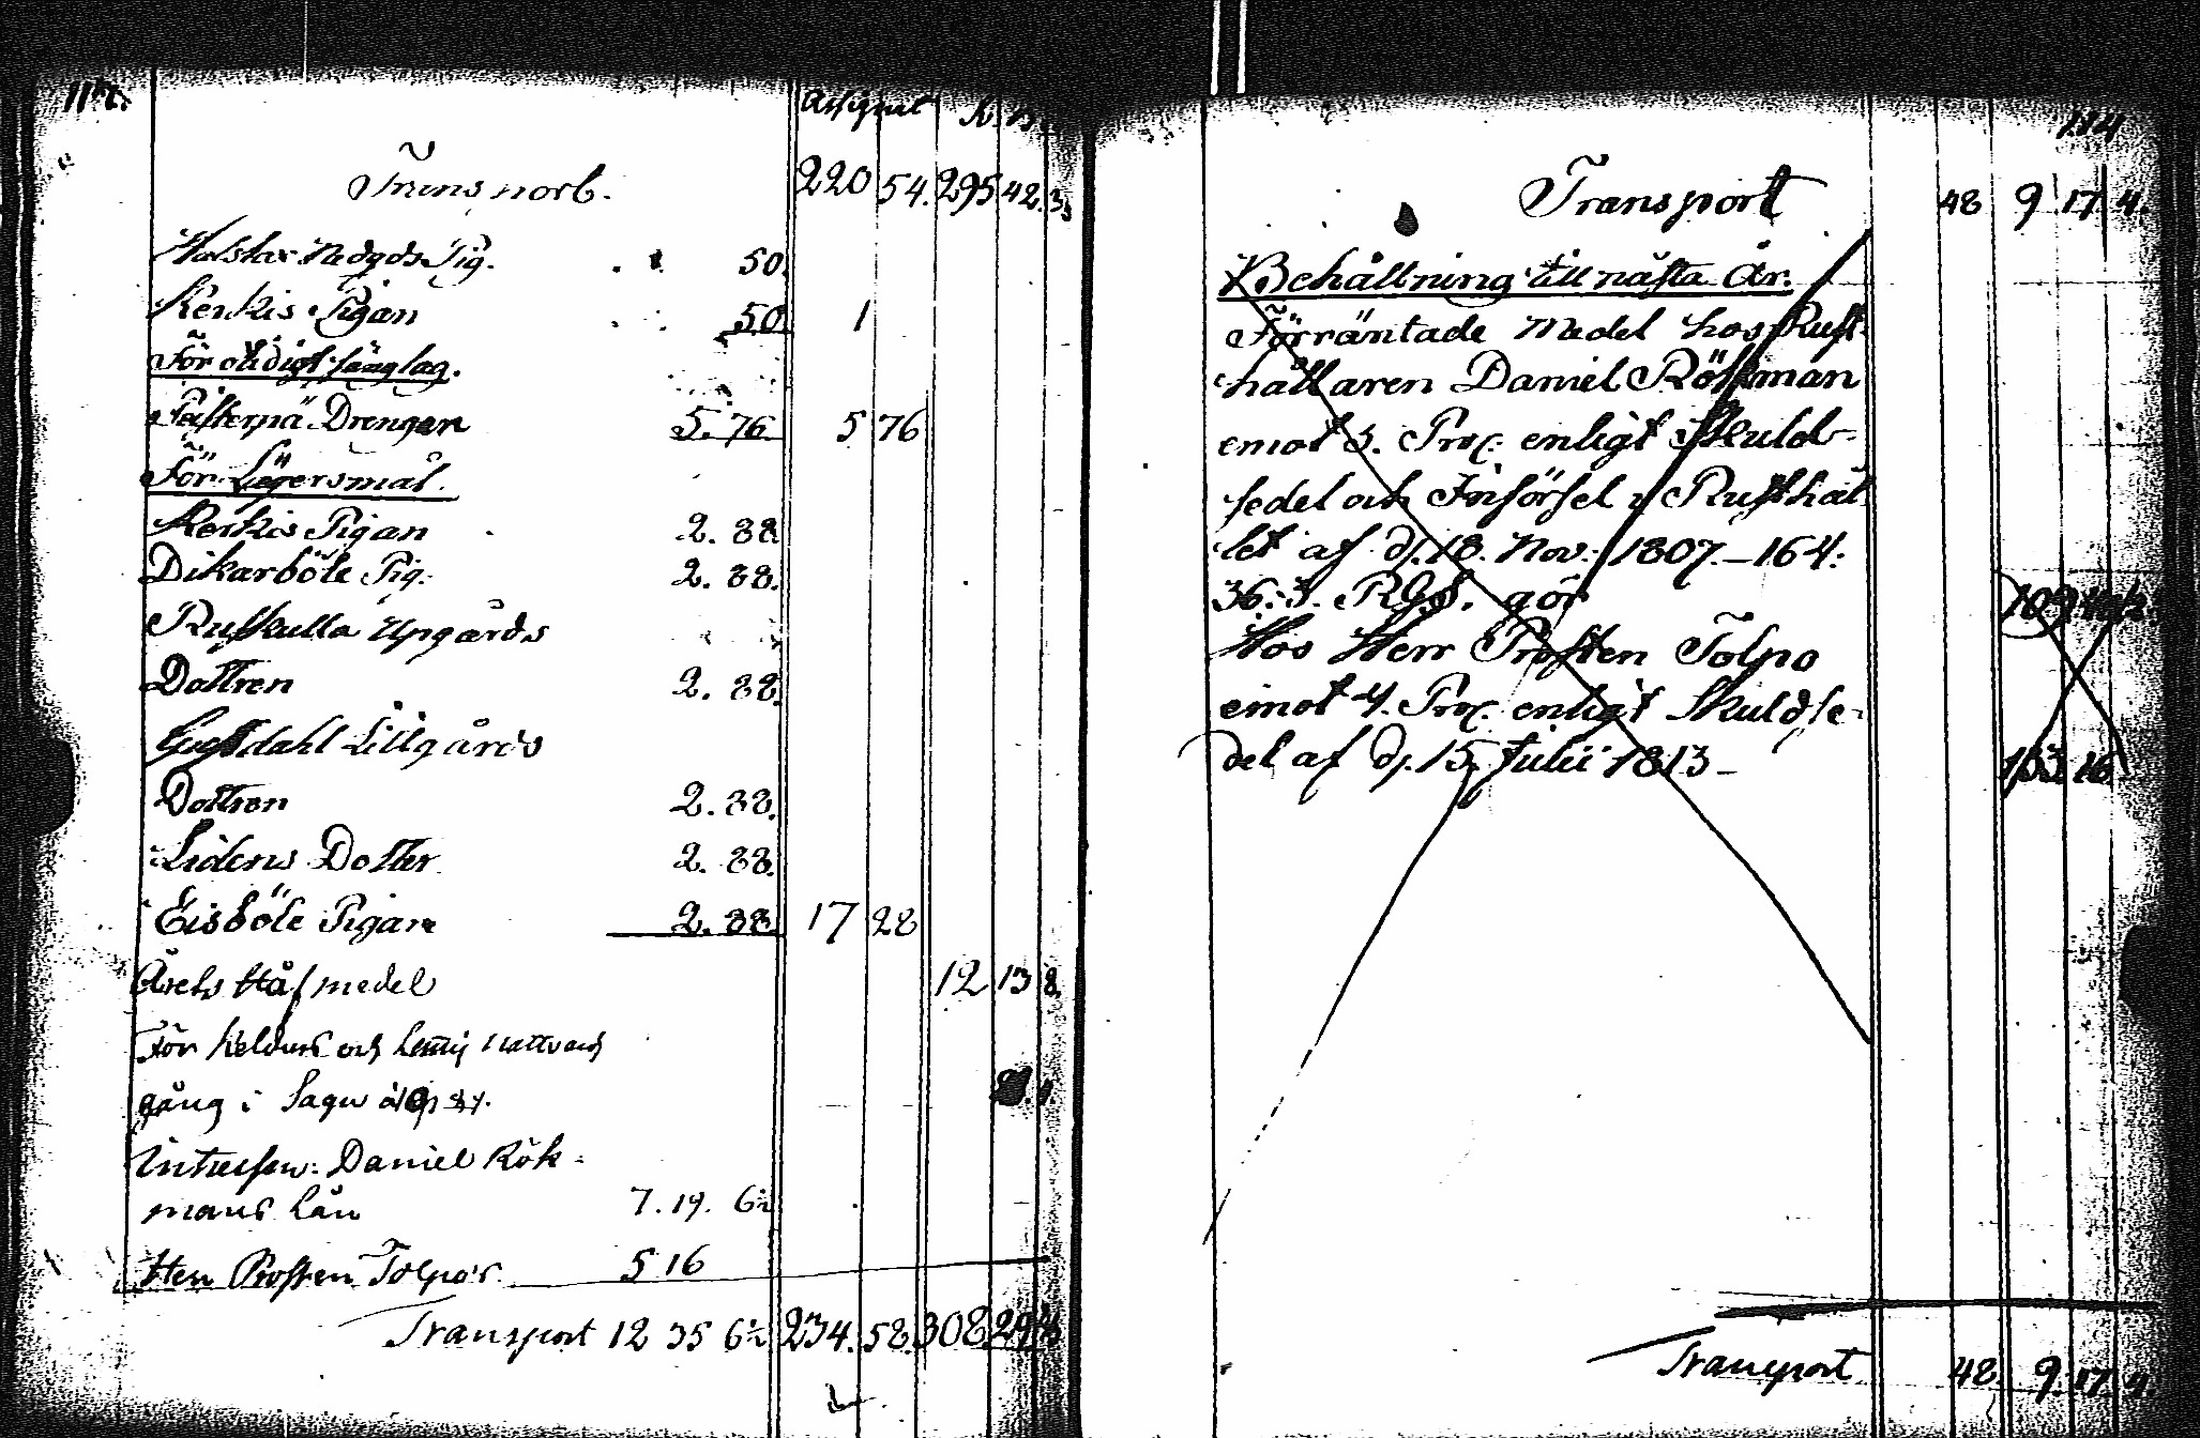 Assignat
Transport. 220 54. 295 42. 3.
Nedgds Pig. 50.
Kerkis Pigan 50 1
För otidigt sänglag.
Drengen 5. 76 5 76
För Lägersmål.
Kerkis Pigan 2. 88
Dikarböle Pig. 2. 88.
Rufkulla Upgårds
Dottren 2. 88.
Lillgårds
Dottren 2. 88.
Lidens Dotter 2. 88.
Eisböle Pigan 2. 88 17 28
Årets Håfmedel 12 13 8.
För och
gång i Sagu
Daniel Rök-
mans Lån 7. 19. 6½
Herr Prosten Tolpo's 5 16
Transport 12 35 6½ 234. 58. 308 29
114
Transport 48 9 17 4.
Behållning till nästa År.
Förräntade Medel hos Rust-
hållaren Daniel Rökman
emot 5. Proc. enligt Skuld-
sedel och Införsel i Rusthål-
let af d. 18. Nov. 1807. – 164:
36: 3. RGS. gör 109
Hos Herr Prosten Tolpo
emot 4. Proc. enligt Skuldse-
del af d. 15. Julii 1813 – 133 16
Transport 48 9. 17 4.